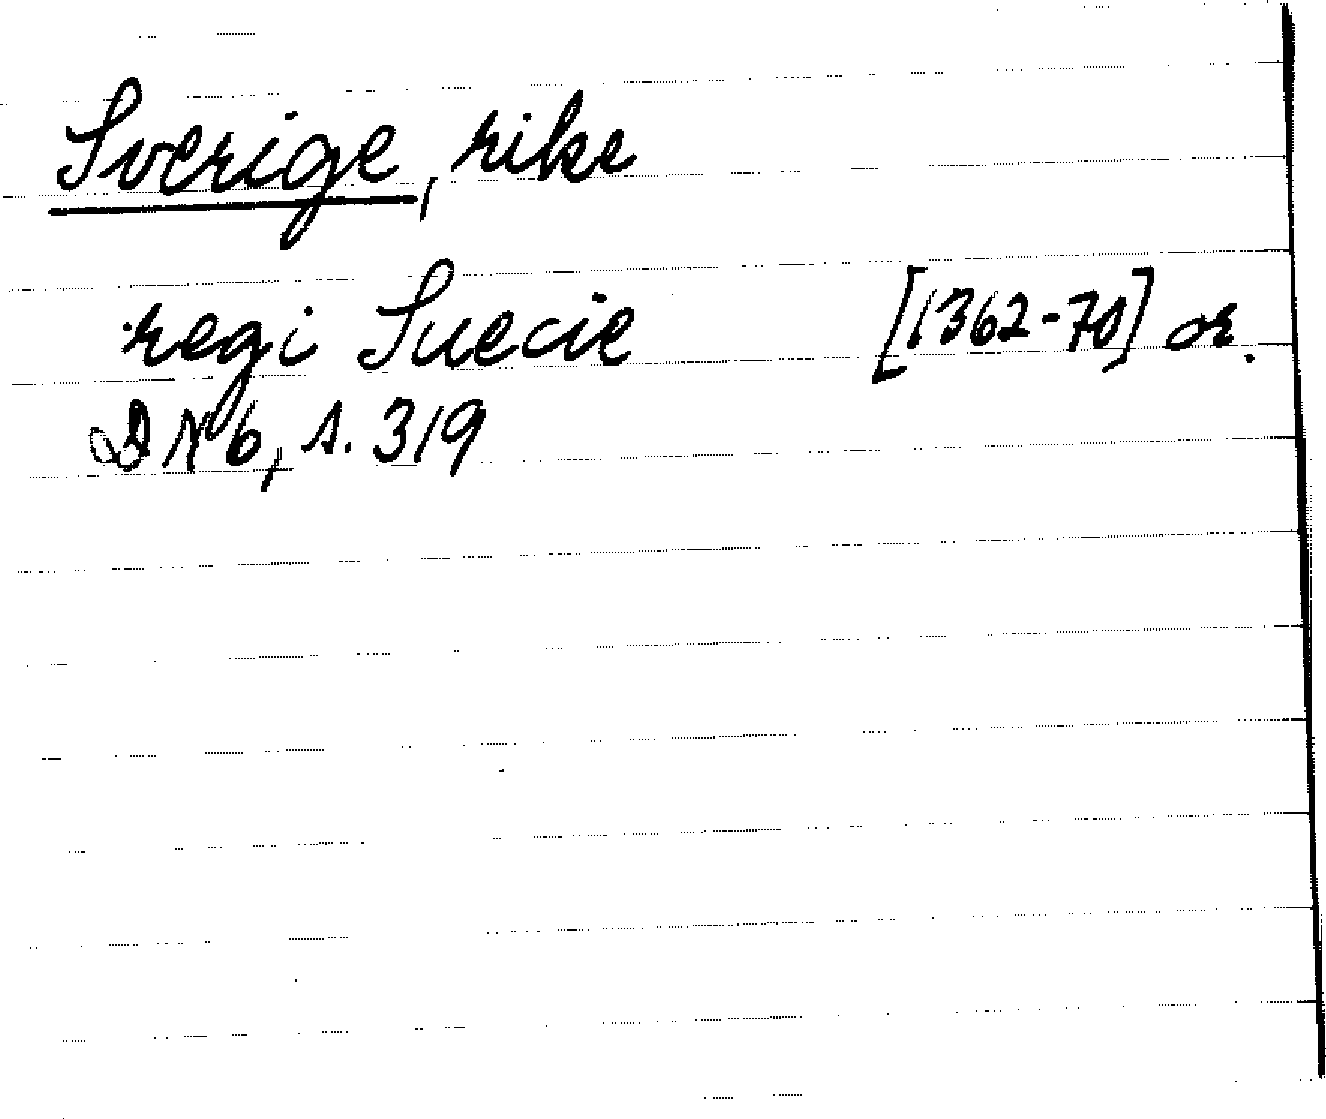 Sverige, rike
regi Suecie [1362-70] or.
DN 6, s. 319